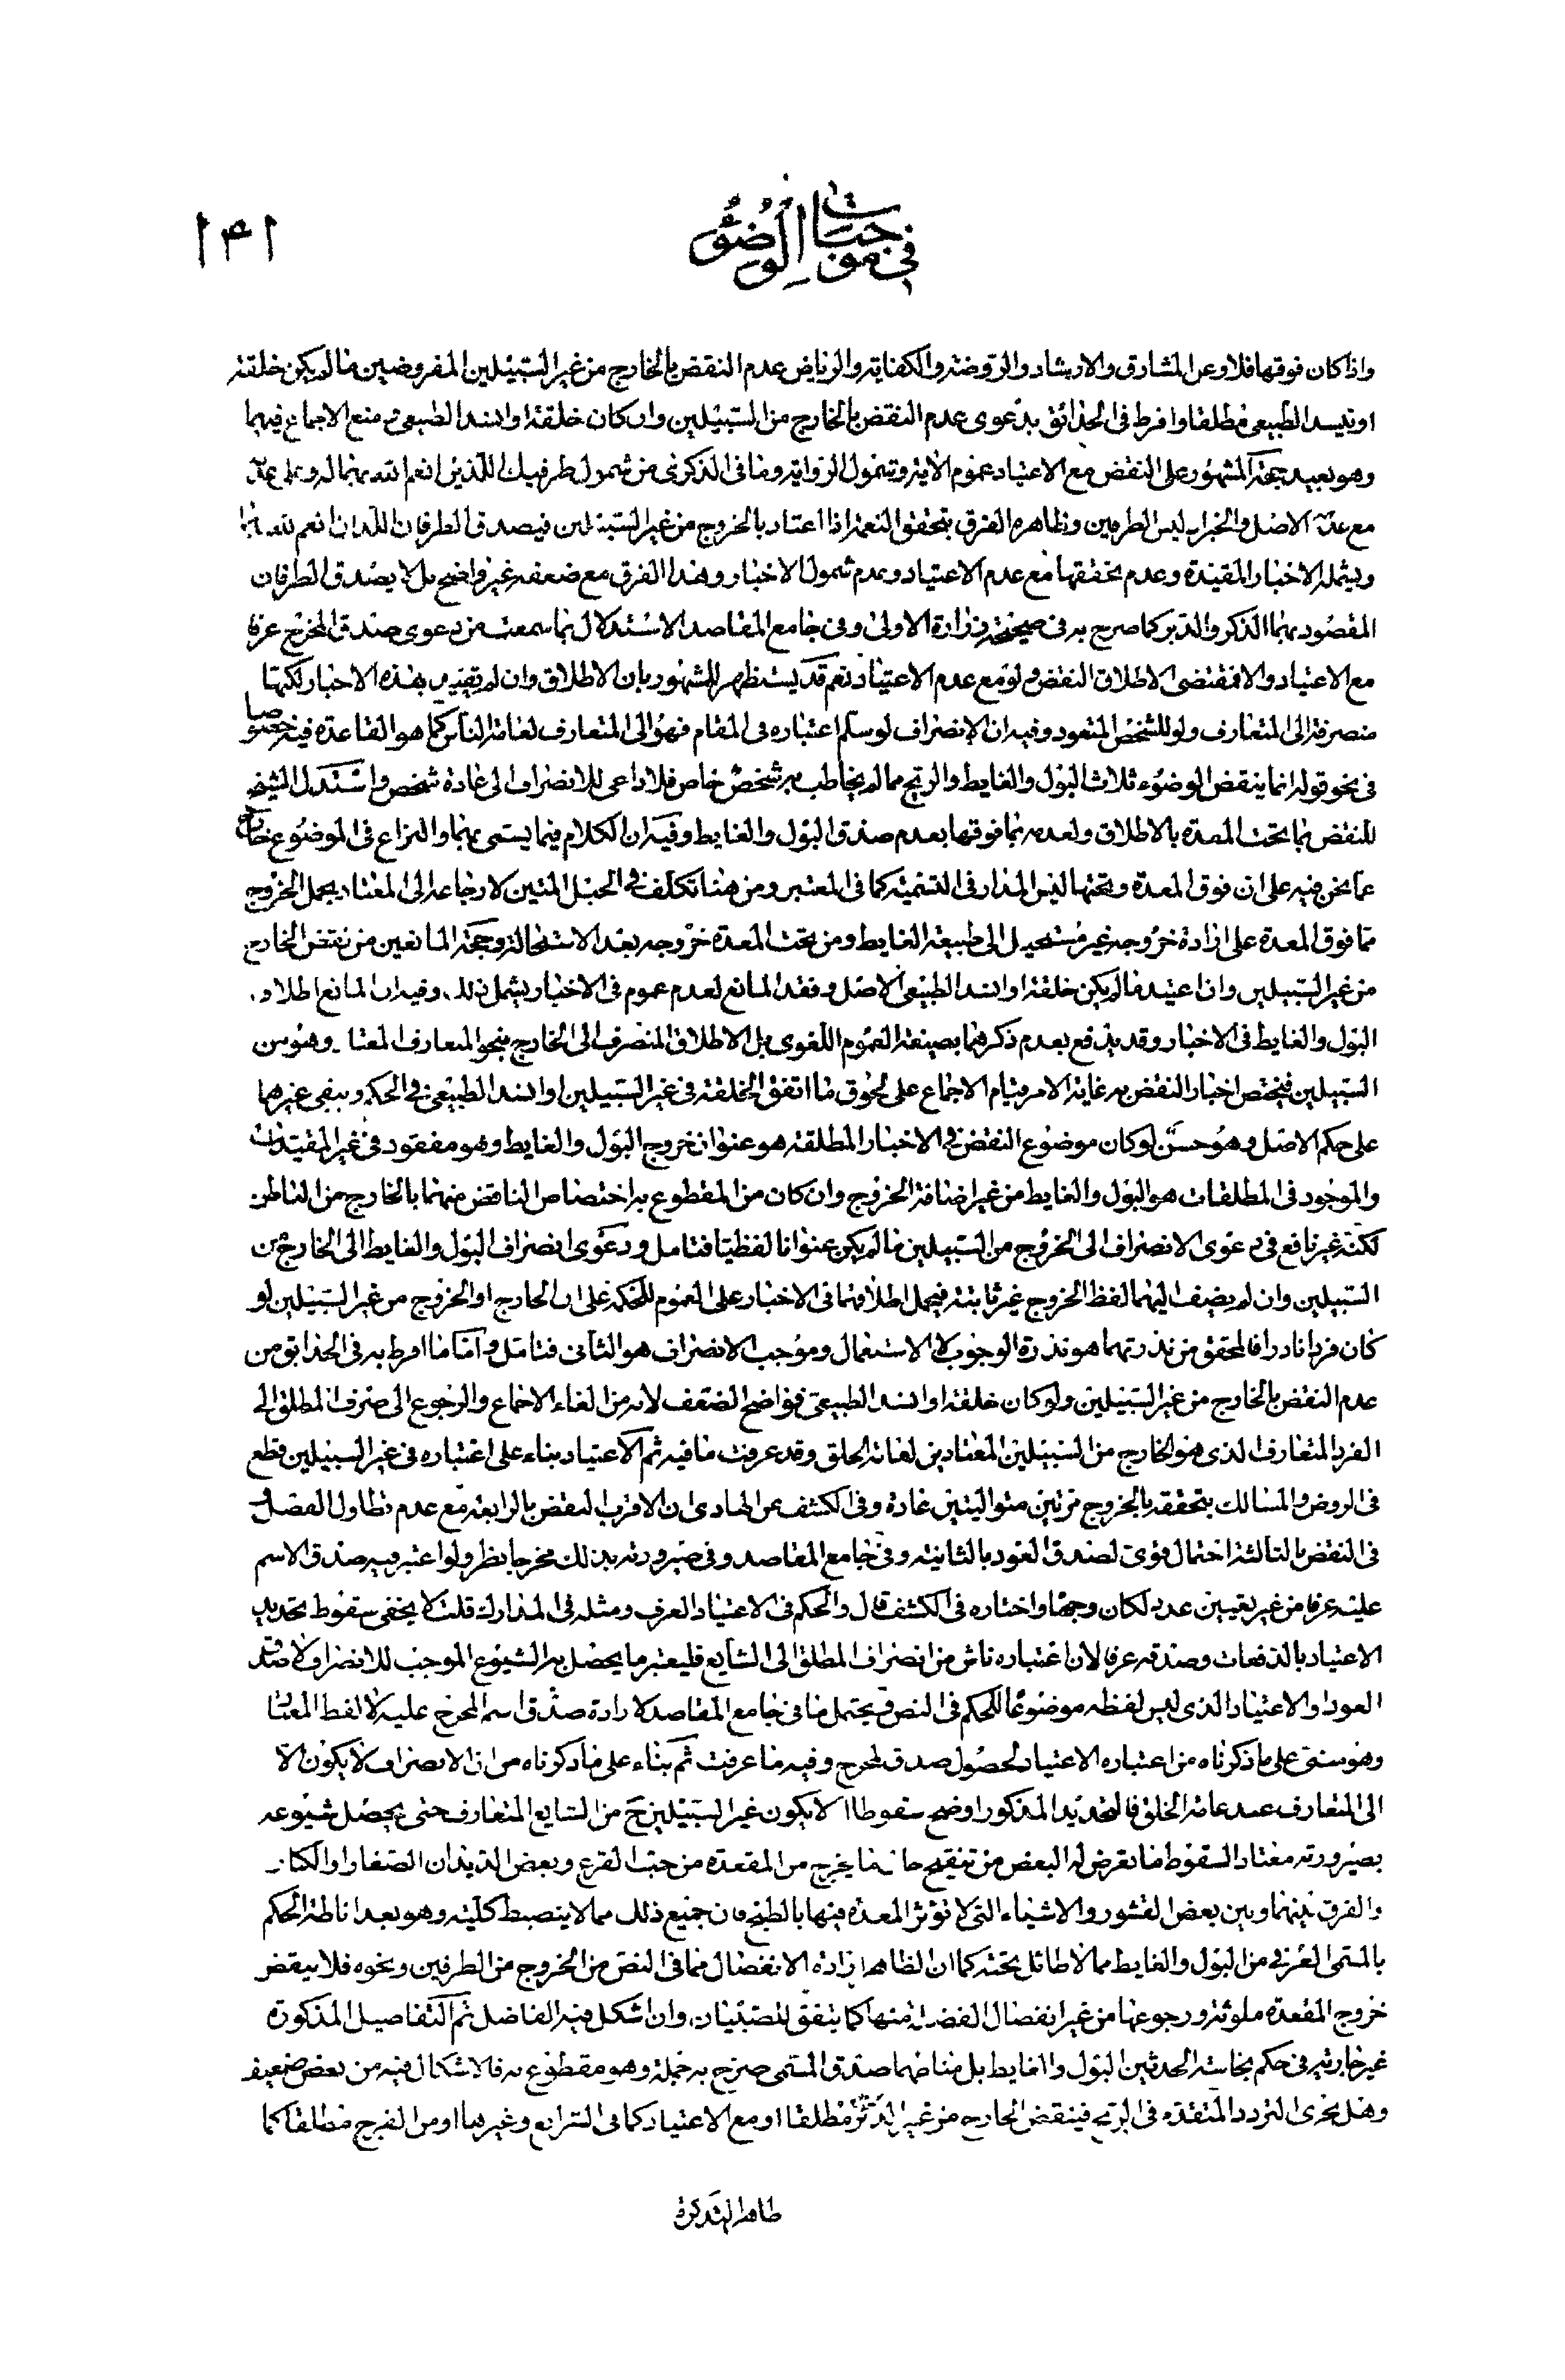 في موجبات الوضوء
١٤١
واذا كان فوقها فلا وعن المشارق والارشاد والروضة والكفاية والرياض عدم النقض بالخارج من غير السبيلين المفروضين ما لم يكن خلقة
او ينسد الطبيعي مطلقا وافرط في الحدائق بدعوى عدم النقض بالخارج من السبيلين وان كان خلقة او انسد الطبيعي مع منع الاجماع فيهما
وهو بعيد حجة المشهور على النقض مع الاعتياد عموم الآية وشمول الرواية وما في الذكرى من شمول طرفيك اللذين انعم الله بهما له وعلى عدمه
مع عدمه الاصل والخبر ليس الطرفين وظاهره الفرق بتحقق النعمة اذا اعتاد بالخروج من غير السبيلين فيصدق الطرفان اللذان انعم الله بهما
ويشمله الاخبار المقيدة وعدم تحققها مع عدم الاعتياد وعدم شمول الاخبار وهذا الفرق مع ضعفه غير واضح بل لا يصدق الطرفان
المقصود بهما الذكر والدبر كما صرح به في صحيحة زرارة الاولى وفي جامع المقاصد الاستدلال بما سمعت من دعوى صدق المخرج عرفا
مع الاعتياد والا فمقتضى الاطلاق النقض ولو مع عدم الاعتياد نعم قد يستظهر للمشهور بان الاطلاق وان لم يقيد بهذه الاخبار لكنها
منصرفة الى المتعارف ولو للشخص المتعود وفيه ان الانصراف لو سلم اعتباره في المقام فهو الى المتعارف لعامة الناس كما هو القاعدة فيه خصوصا
في نحو قوله انما ينقض الوضوء ثلاث البول والغايط والريح مما لم يخاطب به شخص خاص فلا داعي للانصراف الى عادة شخص واستدل الشيخ
للنقض بما تحت المعدة بالاطلاق ولعدمه بما فوقها بعدم صدق البول والغايط وفيه ان الكلام فيما يسمى بهما والنزاع في الموضوع خارج
عما نحن فيه على ان فوق المعدة وتحتها ليس المدار في التسمية كما في المعتبر ومن هنا تكلف في الحبل المتين لارجاعه الى المعتاد بحمل الخروج
مما فوق المعدة على ارادة خروجه غير مستحيل الى طبيعة الغايط ومن تحت المعدة خروجه بعد الاستحالة وحجة المانعين من نقض الخارج
من غير السبيلين وان اعتيد ما لم يكن خلقة او انسد الطبيعي الاصل وفقد المانع لعدم عموم في الاخبار يشمل ذلك وفيه ان المانع اطلاق
البول والغايط في الاخبار وقد يدفع بعدم ذكرهما بصيغة العموم اللغوي بل الاطلاق المنصرف الى الخارج بنحو المتعارف المعتاد وهو من
السبيلين فيختص اخبار النقض به غاية الامر قيام الاجماع على لحوق ما اتفق الخلقة في غير السبيلين او انسد الطبيعي في الحكم ويبقى غيرهما
على حكم الاصل وهو حسن لو كان موضوع النقض في الاخبار المطلقة هو عنوان خروج البول والغايط وهو مفقود في غير المقيدات
والموجود في المطلقات هو البول والغايط من غير اضافة الخروج وان كان من المقطوع به اختصاص الناقض منهما بالخارج من الباطن
لكنه غير نافع في دعوى الانصراف الى الخروج من السبيلين ما لم يكن عنوانا لفظيا فتامل ودعوى انصراف البول والغايط الى الخارج من
السبيلين وان لم يضف اليهما لفظ الخروج غير ثابتة فيحمل اطلاقهما في الاخبار على العموم للحكمة على ان الخارج او الخروج من غير السبيلين لو
كان فردا نادرا فالمحقق من ندرتهما هو ندرة الوجود لا الاستعمال وموجب الانصراف هو الثاني فتامل واما ما افرط به في الحدائق من
عدم النقض بالخارج من غير السبيلين ولو كان خلقة او انسد الطبيعي فواضح الضعف لانه من الغاء الاجماع والرجوع الى صرف المطلق الى
الفرد المتعارف الذي هو الخارج من السبيلين المعتادين لعامة الخلق وقد عرفت ما فيه ثم الاعتياد بناء على اعتباره في غير السبيلين قطع
في الروض والمسالك بتحققه بالخروج مرتين متواليتين عادة وفي الكشف عن الهادي ان الاقرب النقض بالرابعة مع عدم تطاول الفصل
في النقض بالثالثة احتمال قوي لصدق العود بالثانية وفي جامع المقاصد وفي صيرورته بذلك مخرجا نظر ولو اعتبر فيه صدق الاسم
عليه عرفا من غير تعيين عدد لكان وجها واختاره في الكشف قال والحكم في الاعتياد العرف ومثله في المدارك قلت لا يخفى سقوط تحديد
الاعتياد بالدفعات وصدقه عرفا لان اعتباره ناش من انصراف المطلق الى الشايع فليعتبر ما يحصل به الشيوع الموجب للانصراف لا صدق
العود او الاعتياد الذي ليس لفظه موضوعا للحكم في النص ويحتمل ما في جامع المقاصد لارادة صدق اسم المخرج عليه لا لفظ المعتاد
وهو مبني على ما ذكرناه من اعتباره الاعتياد لحصول صدق المخرج وفيه ما عرفت ثم بناء على ما ذكرناه من ان الانصراف لا يكون الا
الى المتعارف عند عامة الخلق فالتحديد المذكور اوضح سقوطا اذ لا يكون غير السبيلين ح من الشايع المتعارف حتى يحصل شيوعه
بصيرورته معتادا لسقوط ما تعرض له البعض من تنقيح حال ما يخرج من المقعدة من حب القرع وبعض الديدان الصغار او الكبار
والفرق بينهما وبين بعض القشور والاشياء التي لا تؤثر المعدة فيها بالطبخ فان جميع ذلك مما لا ينضبط كلية وهو بعد اناطة الحكم
بالمسمى العرفي من البول والغايط مما لا طائل تحته كما ان الظاهر ارادة الانفصال مما في النص من الخروج من الطرفين ونحوه فلا ينقض
خروج المقعدة ملوثة ورجوعها من غير انفصال الفضلة منها كما يتفق للصبيان وان اشكل فيه الفاضل ثم التفاصيل المذكورة
غير جارية في حكم نجاسة الحدثين البول والغايط بل مناطهما صدق المسمى صرح به جملة وهو مقطوع به فالاشكال فيه من بعض ضعيف
وهل يجرى التردد المتقدم في الريح فينقض الخارج من غير الدبر مطلقا او مع الاعتياد كما في السرائر وغيرها او من الفرج مطلقا كما
ظاهر التذكرة